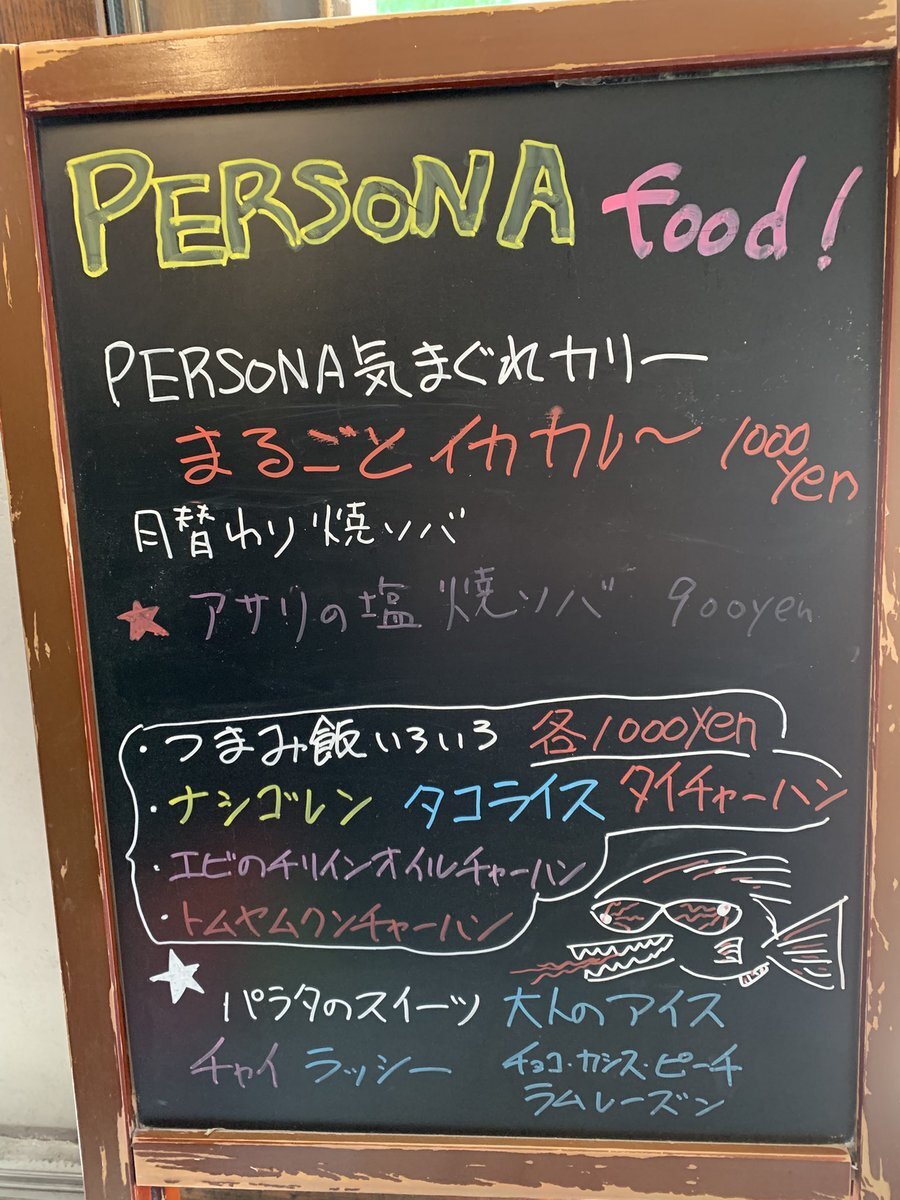 PERSONA food!
PERSONA気まぐれカリー
まるごとイカカレ〜 1000yen
月替わり焼ソバ
★アサリの塩焼ソバ 900yen
・つまみ飯いろいろ 各1000yen
・ナシゴレン タコライス タイチャーハン
・エビのチリインオイルチャーハン
・トムヤムクンチャーハン
★
パラタのスイーツ 大人のアイス
チャイ ラッシー チョコ・カシス・ピーチ
ラムレーズン